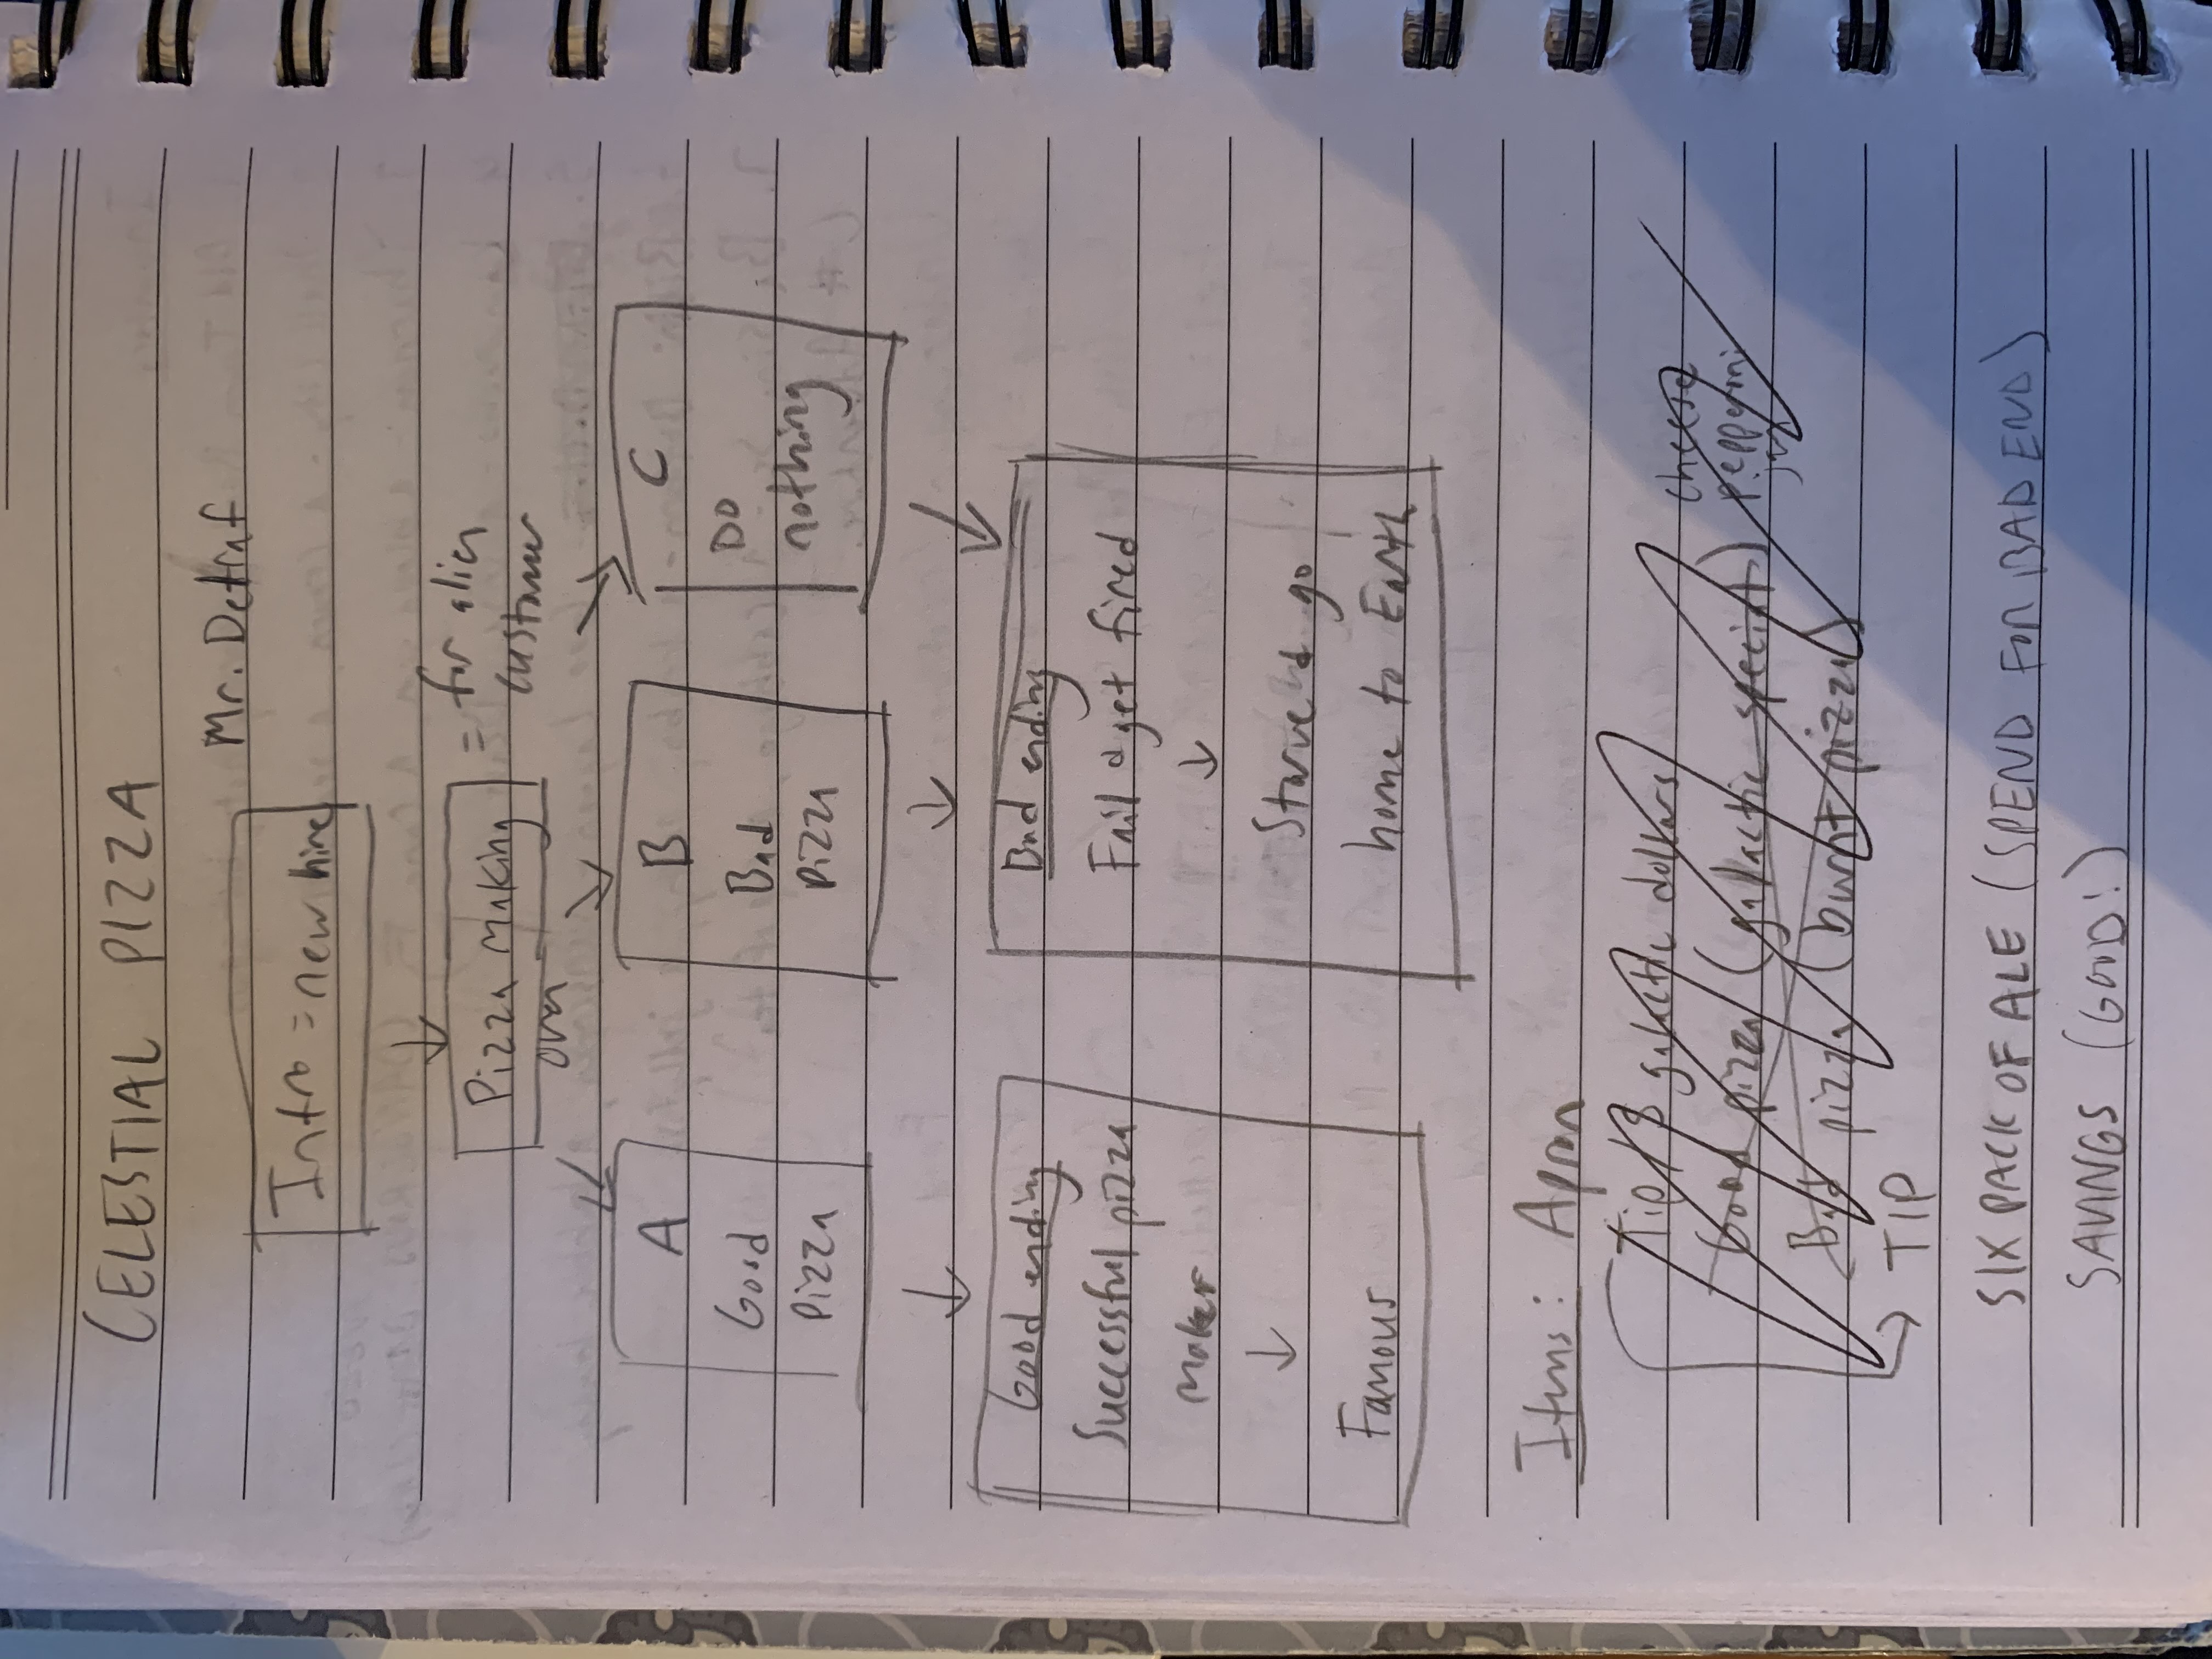 CELESTIAL PIZZA
Mr. Detraf
Intro = new hire
Pizza Making
= for alien
customer
oven
A
Good
pizza
B
Bad
pizza
C
Do
nothing
Good ending
Successful pizza
maker
Famous
Bad ending
Fail & get fired
Starve & go
home to Earth
Items: Apron
Tip / 8 galactic dollars
Good pizza (galactic special)
cheese
pepperoni
Bad pizza (burnt pizza)
TIP
SIX PACK OF ALE (SPEND FOR BAD END)
SAVINGS (GOOD!)